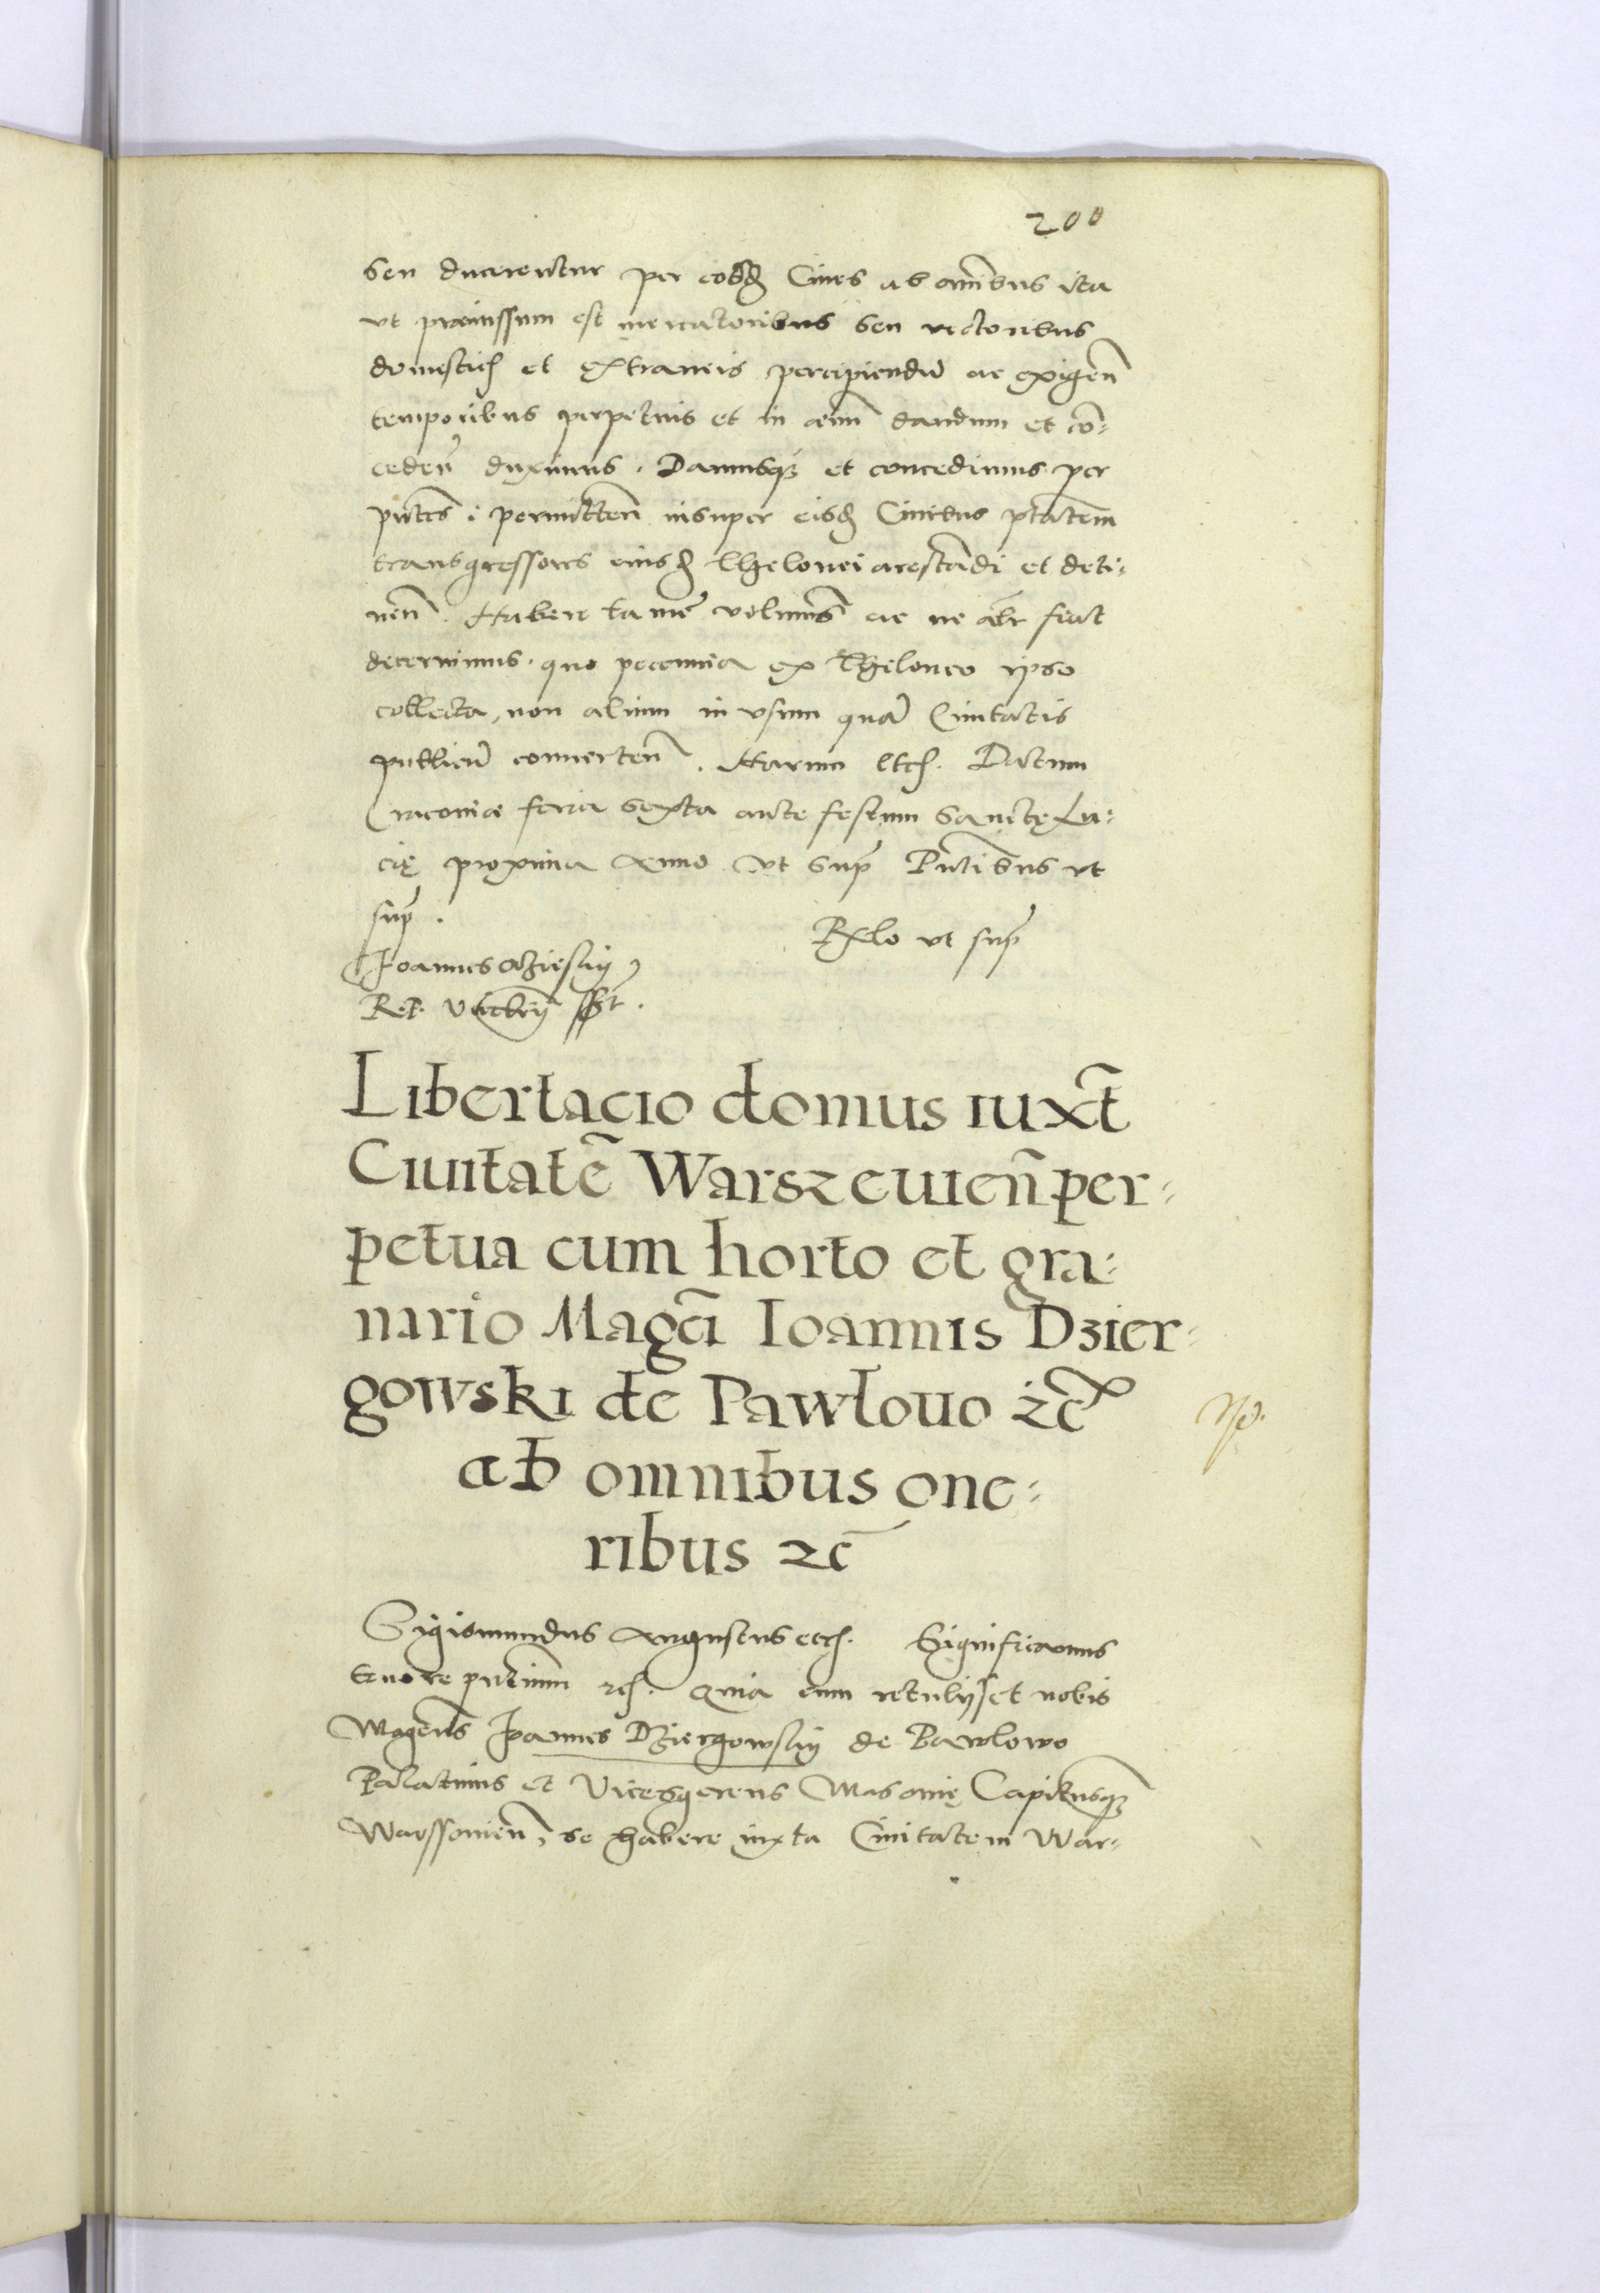 200
seu ducerentur per eosd Ciues ab omībus ita
vt præmissum est mercatoribus seu vectoribus
domesticis et extraneis percipiendū ac exigen̄
temporibus perpetuis et in æuum dandum et cō-
ceden̄ duximus. Damusq3 et concedimus per
pn̄tes: permitten̄ insuper eisd Ciuibus ptatem
transgressores eiusd Thelonei arestandi et deti-
nen̄. Habere tamē volumus ac ne alr fiat
decernimus. quo pecunia ex Theloneo ipso
collecta, non alium in vsum quā Ciuitatis
publicū conuerten̄. Harum etc. Datum
Cracouiæ feria sexta ante festum Sanctę Lu-
cię proxima Anno vt sup̄ Pn̄tibus vt
sup̄.
Rlo vt sup̄
Joannes Ocziesky
R. P. Vicecan̄ sst.
Libertacio domus iuxt̄
Ciuitatē Warszeuien̄ per-
petua cum horto et gra-
nario Magci Ioannis Dzier-
gowski de Pawlouo zc̄
ab omnibus one-
ribus zc̄
Sigismundus Augustus etc. Significamus
tenore pn̄tium zc. Quia cum retulisset nobis
Magcus Joannes Dziergowsky de Pawlowo
Palatinus et Vicesgerens Masouię Capitneusq3
Warssouien̄, se habere iuxta Ciuitatem War-